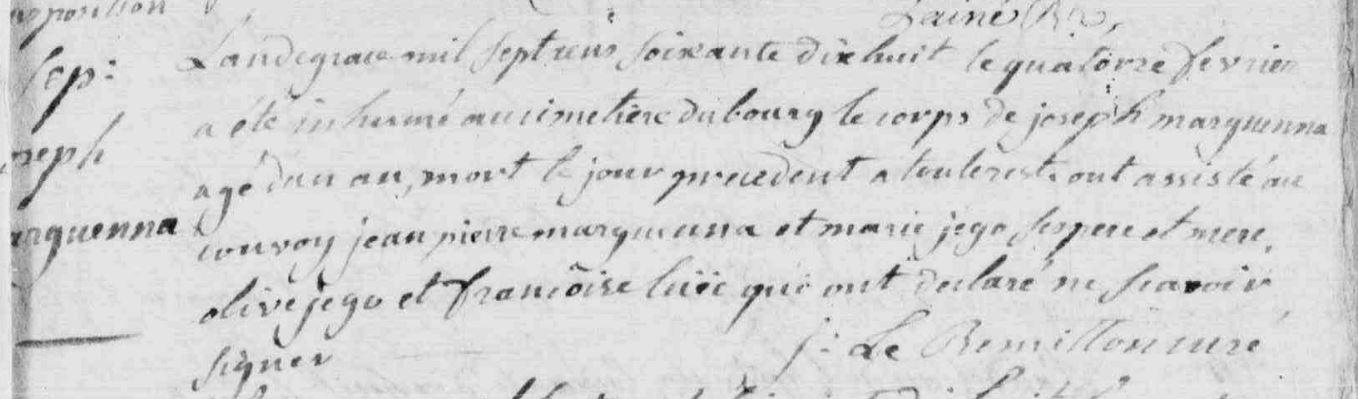 apposition
Lainé
Sep:
oseph
arquenna
Lan de grace mil sept cens soixante dixhuit le quatorze fevrier
a été inhumé au cimetière du bourg le corps de joseph marquenna
agé dun an, mort le jour precedent a ont assisté au
convoy jean pierre marquenna et marie jego ses pere et mere,
olive jego et françoise luëc qui ont declaré ne scavoir
signer
j: Le curé